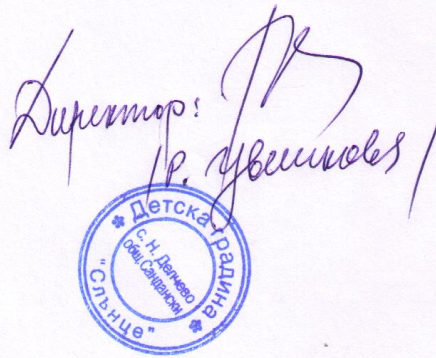 Директор:
/Р. Цветкова/
Детска градина
"Слънце"
с. Н. Делчево
общ. Сандански